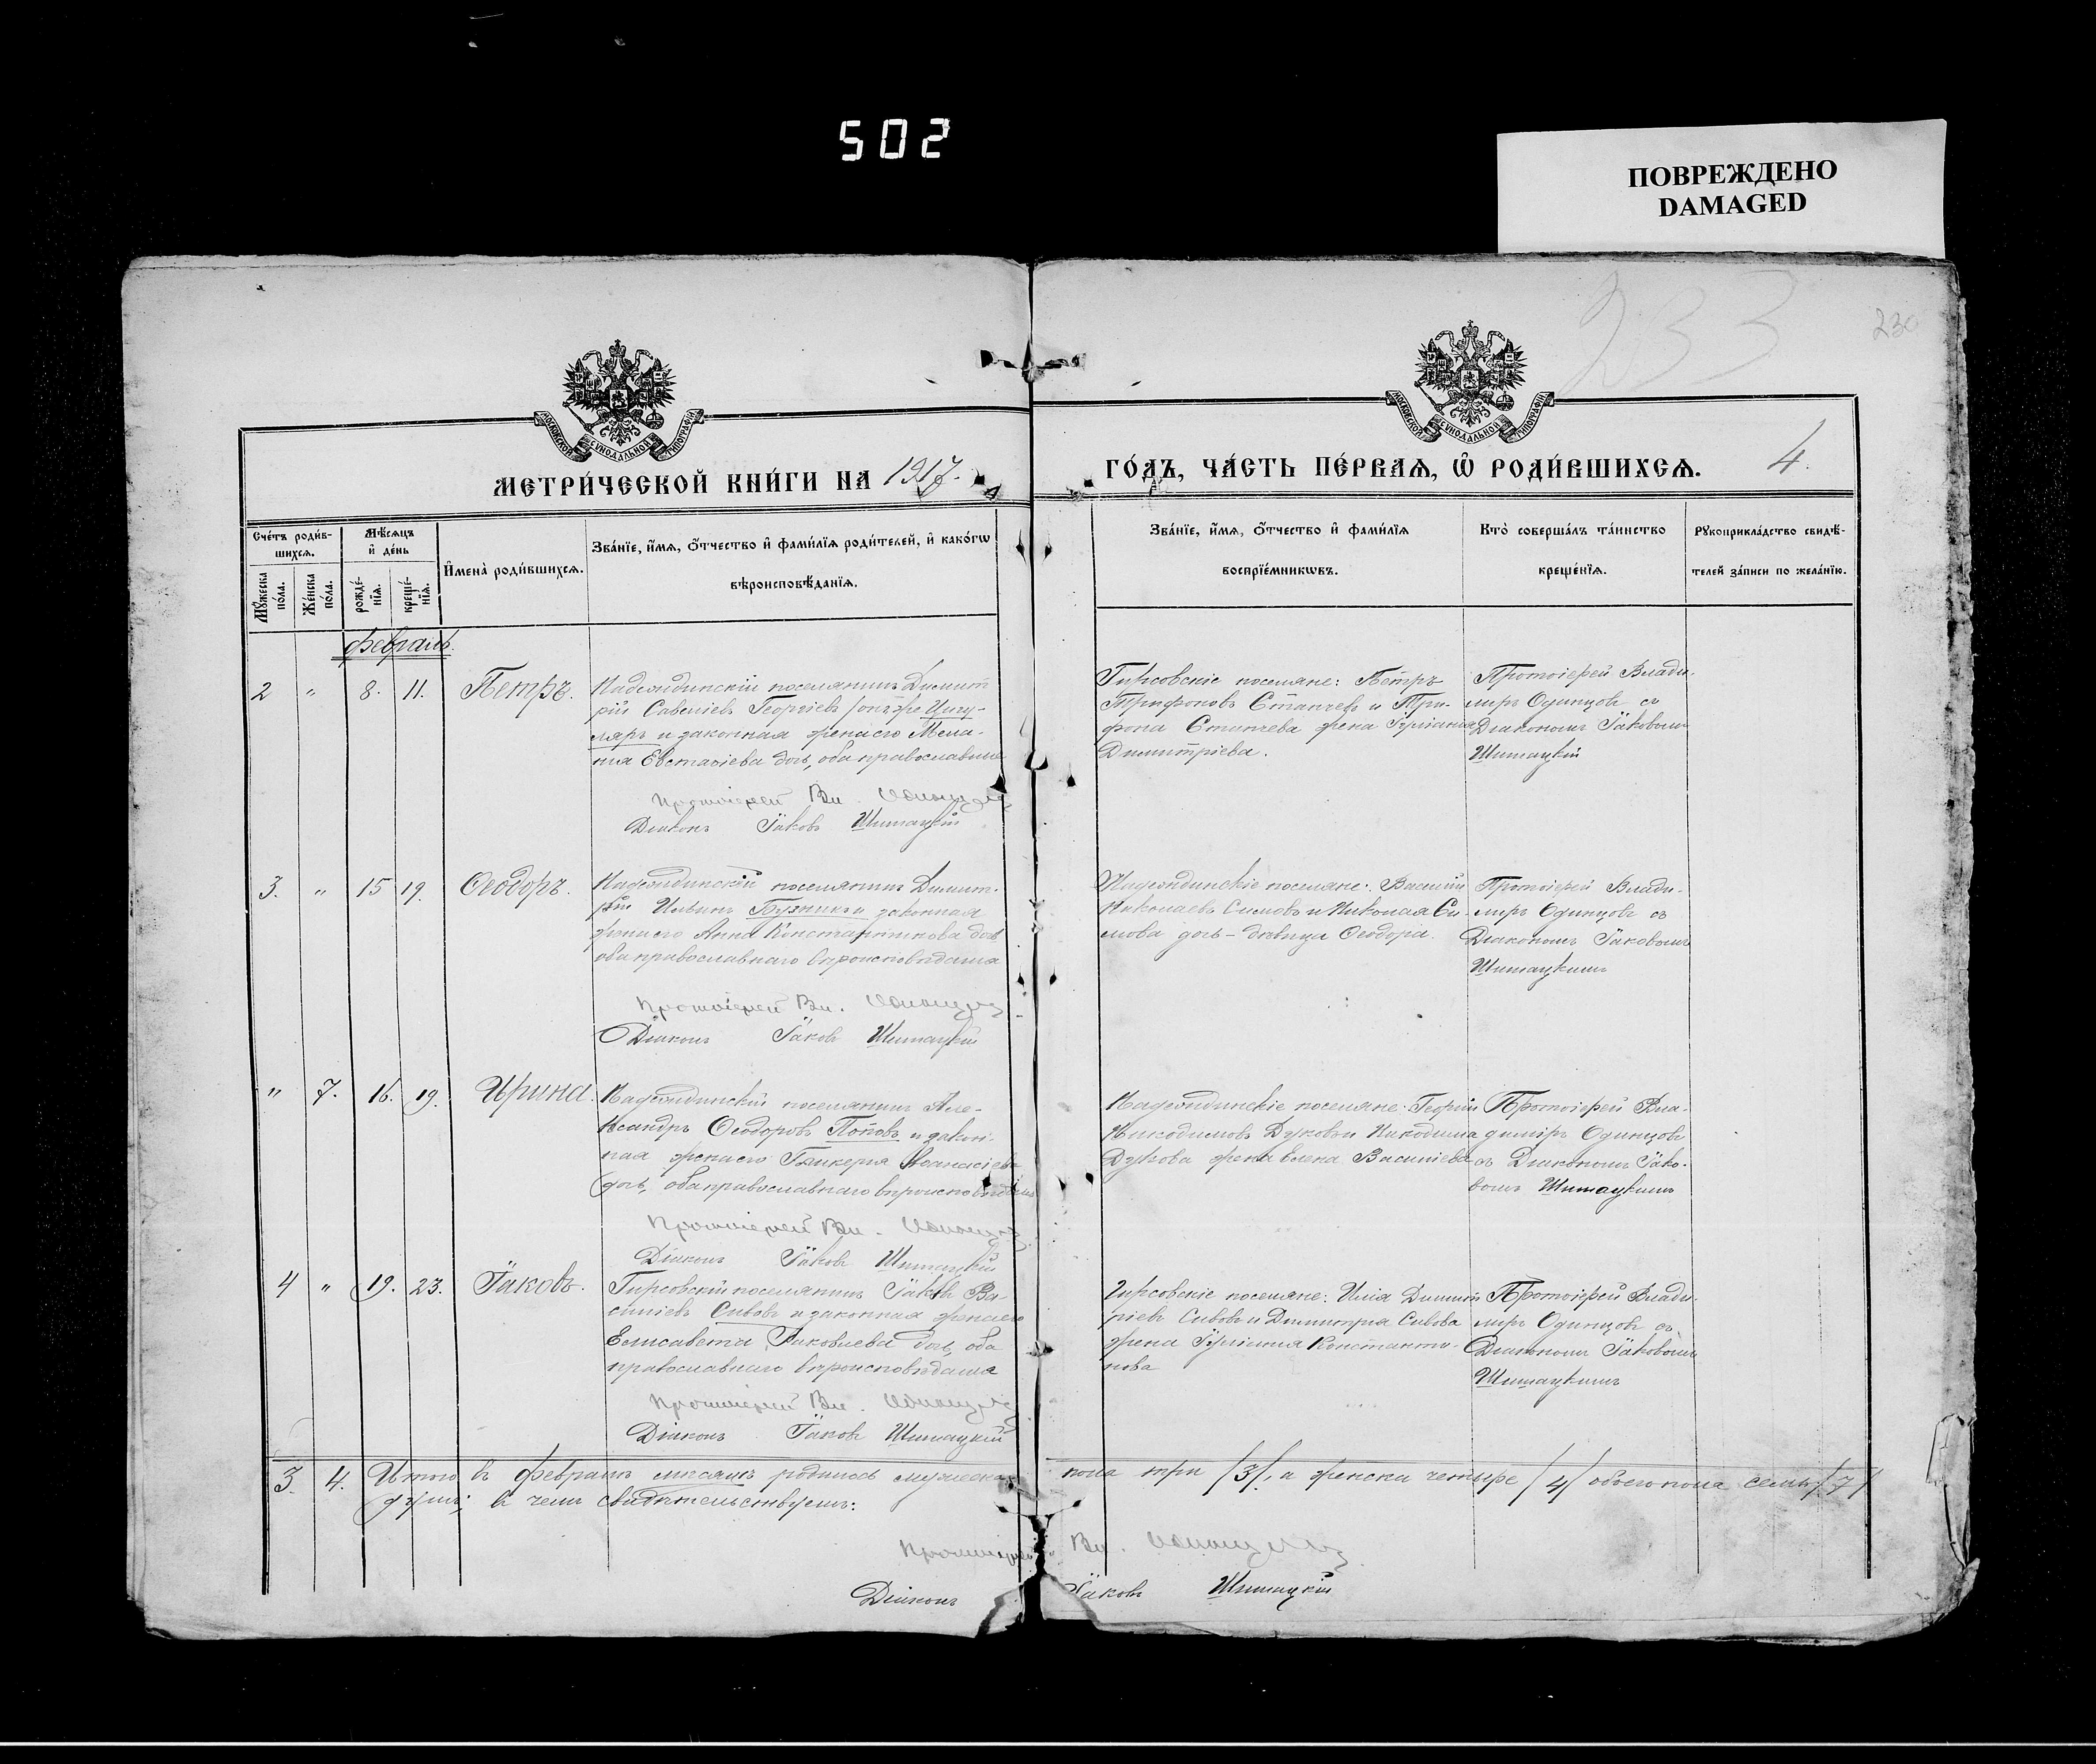 502
ПОВРЕЖДЕНО
DAMAGED
233
230
МОСКОВСКОЙ СѴНОДАЛЬНОЙ ТИПОГРАФІИ
МОСКОВСКОЙ СѴНОДАЛЬНОЙ ТИПОГРАФІИ
МЕТРИ́ЧЕСКОЙ КНИ́ГИ НА 1917.
ГО́ДЪ, ЧА́СТЬ ПЕ́РВАѦ, Ѽ РОДИ́ВШИХСѦ. 4.
Сче́тъ роди́в-
шихсѧ.
Мѣ́сѧцъ
и҆ де́нь
Мꙋ́жеска по́ла.
Же́нска по́ла.
рожде́-нїѧ.
креще́-нїѧ.
И҆мена̀ роди́вшихсѧ.
Зва́нїе, и҆́мѧ, ѻ҆́тчество и҆ фами́лїѧ роди́телей, и҆ како́гѡ
вѣроисповѣ́данїѧ.
Зва́нїе, и҆́мѧ, ѻ҆́тчество и҆ фами́лїѧ
воспрїе́мникѡвъ.
Кто̀ соверша́лъ та́инство
креще́нїѧ.
Рꙋкоприкла́дство свидѣ́-
телей за́писи по жела́нїю.
февраль.
2 " 8. 11. Петръ.
поселянинъ Димит
рій Савеліевъ Георгіевъ /онъ же
и законная жена его Мела-
нія Евстафіева дочь, оба православные
Протоіерей Вл. Одинцовъ
Діаконъ Іаковъ
Гирсовскіе поселяне: Петръ
Трифоновъ Станчевъ и Три-
фона Станчева жена
Димитріева.
Протоіерей Влади-
миръ Одинцовъ съ
Діакономъ Іаковомъ
3. " 15 19. Ѳеодоръ.
поселянинъ Димит-
рій Ильинъ и законная
жена его Анна Константинова дочь
оба православнаго вѣроисповѣданія
Протоіерей Вл. Одинцовъ
Діаконъ Іаковъ
поселяне: Василій
Николаевъ Симовъ и Николая Си-
мова дочь - дѣвица Ѳеодора.
Протоіерей Влади-
миръ Одинцовъ съ
Діакономъ Іаковомъ
" 7. 16. 19. Ирина.
поселянинъ Але-
ксандръ Ѳеодоровъ Поповъ и закон-
ная жена его Гликерія Аѳанасіева
дочь, оба православнаго вѣроисповѣданія
Протоіерей Вл. Одинцовъ
Діаконъ Іаковъ
поселяне: Георгій
Никодимовъ Дуковъ и Никодима
Дукова жена Елена Василіева
Протоіерей Вла-
димиръ Одинцовъ
съ Діакономъ Іако-
вомъ
4 " 19. 23. Іаковъ.
Гирсовскій поселянинъ Іаковъ Ва-
силіевъ Сивовъ и законная жена его
Елисавета Іаковлева дочь, оба
православнаго вѣроисповѣданія
Протоіерей Вл. Одинцовъ
Діаконъ Іаковъ
Гирсовскіе поселяне: Илія Димит-
ріевъ Сивовъ и Димитрія Сивова
жена Константи-
нова
Протоіерей Влади-
миръ Одинцовъ съ
Діакономъ Іаковомъ
3. 4. Итого въ февралѣ мѣсяцѣ родилось мужеска пола три /3/, а женска четыре /4/ обоего пола семь /7/
душъ; въ чемъ свидѣтельствуемъ:
Протоіерей Вл. Одинцовъ
Діаконъ Іаковъ